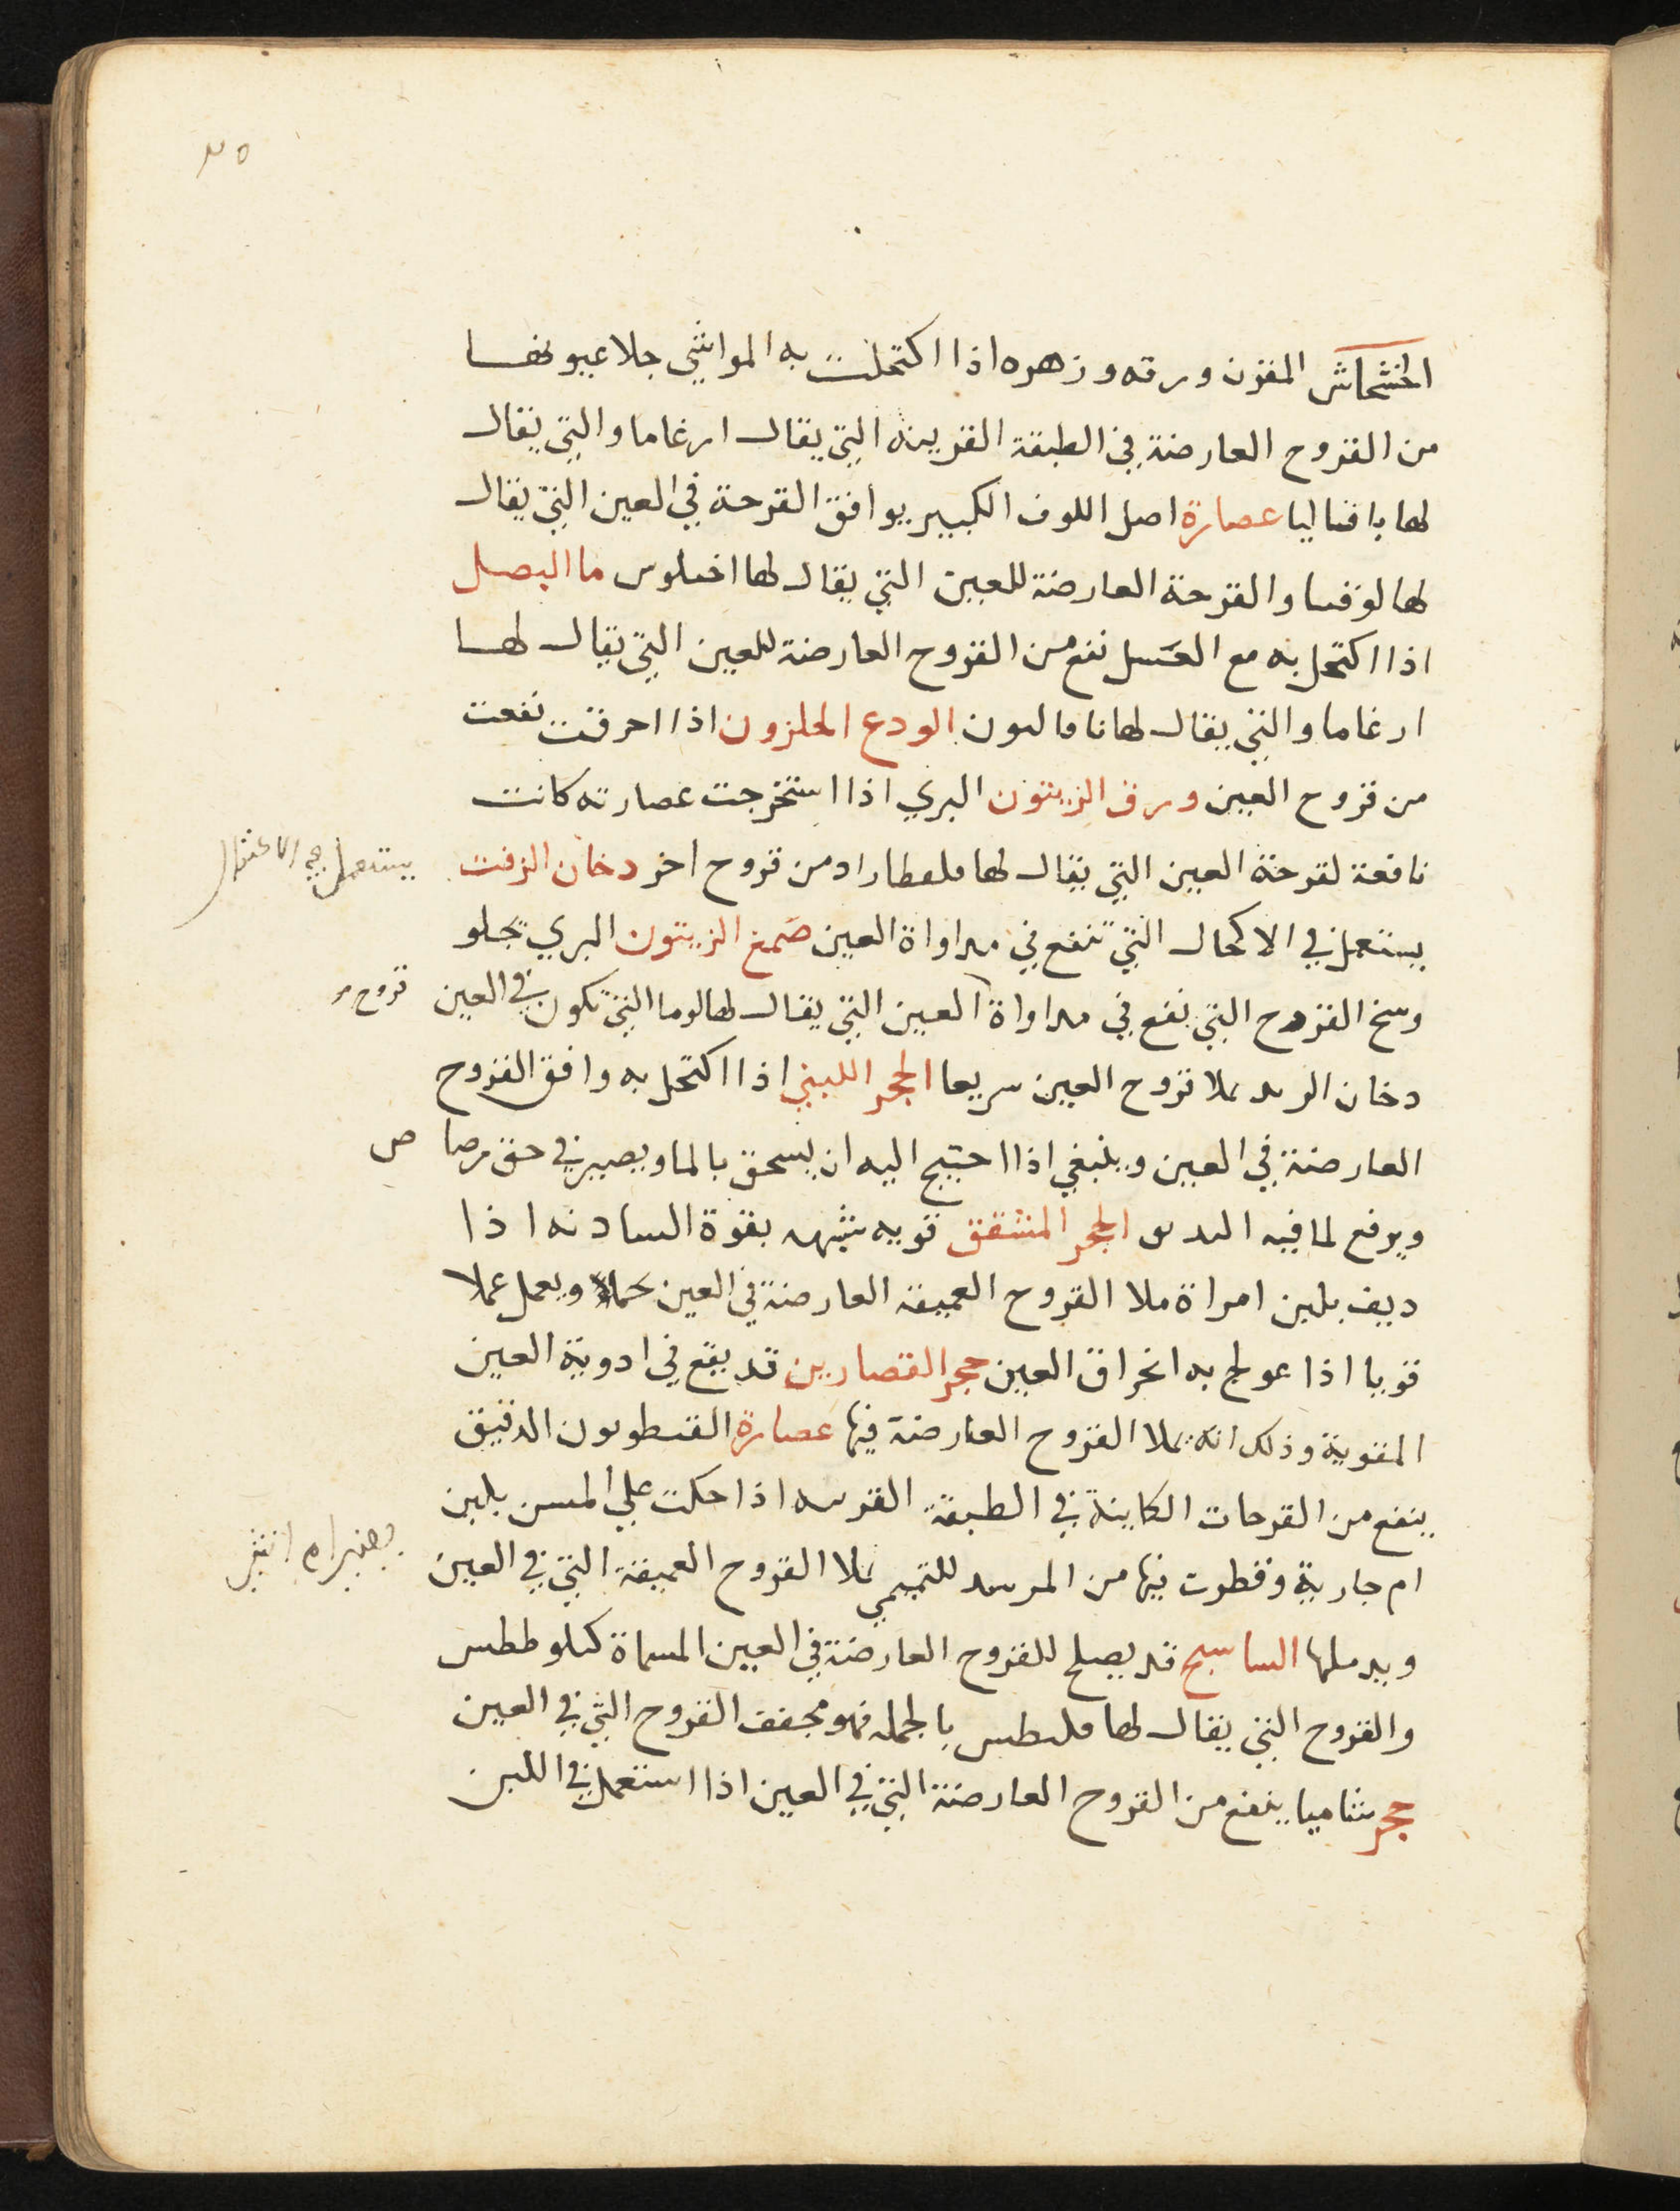 الخشخاش المقرن ورقه وزهره اذا اكتحلت به المواشي جلا عيونها
من القروح العارضة في الطبقة القرنيه التي يقال ارغاما والتي يقال
لها عصارة اصل اللوف الكبير يوافق القرحة في العين التي يقال
لها والقرحة العارضة للعين التي يقال لها ما البصل
اذا اكتحل به مع العسل نفع من القروح العارضة للعين التي يقال لها
ارغاما والتي يقال لها الودع الحلزون اذا احرقت نفعت
من قروح العين ورق الزيتون البري اذا استخرجت عصارته كانت
نافعة لقرحة العين التي يقال لها ومن قروح اخر دخان الزفت
يستعمل في
يستعمل في الاكحال التي تنفع في مداواة العين صمغ الزيتون البري يجلو
وسخ القروح التي نفع في مداواة العين التي يقال لها لوما التي تكون في العين
قروح
دخان يملا قروح العين سريعا الحجر اللبني اذا اكتحل به وافق القروح
العارضة في العين وينبغي اذا احتيج اليه ان يسحق بالما ويصير في حق رصاص
ويرفع لما فيه الحجر المشقق قويه شبيهه بقوة السادنه اذا
ديف بلبن امراة ملا القروح العميقة العارضة في العين ويعمل عملا
قويا اذا عولج به انخراق العين حجر القصارين قد يقع في ادوية العين
المغرية وذلك انه يملا القروح العارضة فيها عصارة القنطوريون الدقيق
ينفع من القرحات الكاينة في الطبقة القرنيه اذا حكت علي المسن بلبن
ام جارية وقطرت فيها من المرشد للتميمي يملا القروح العميقة التي في العين
ويدملها قد يصلح للقروح العارضة في العين المسماة
والقروح التي يقال لها بالجمله فهو مجفف القروح التي في العين
حجر شاميا ينفع من القروح العارضة التي في العين اذا استعمل في اللبن